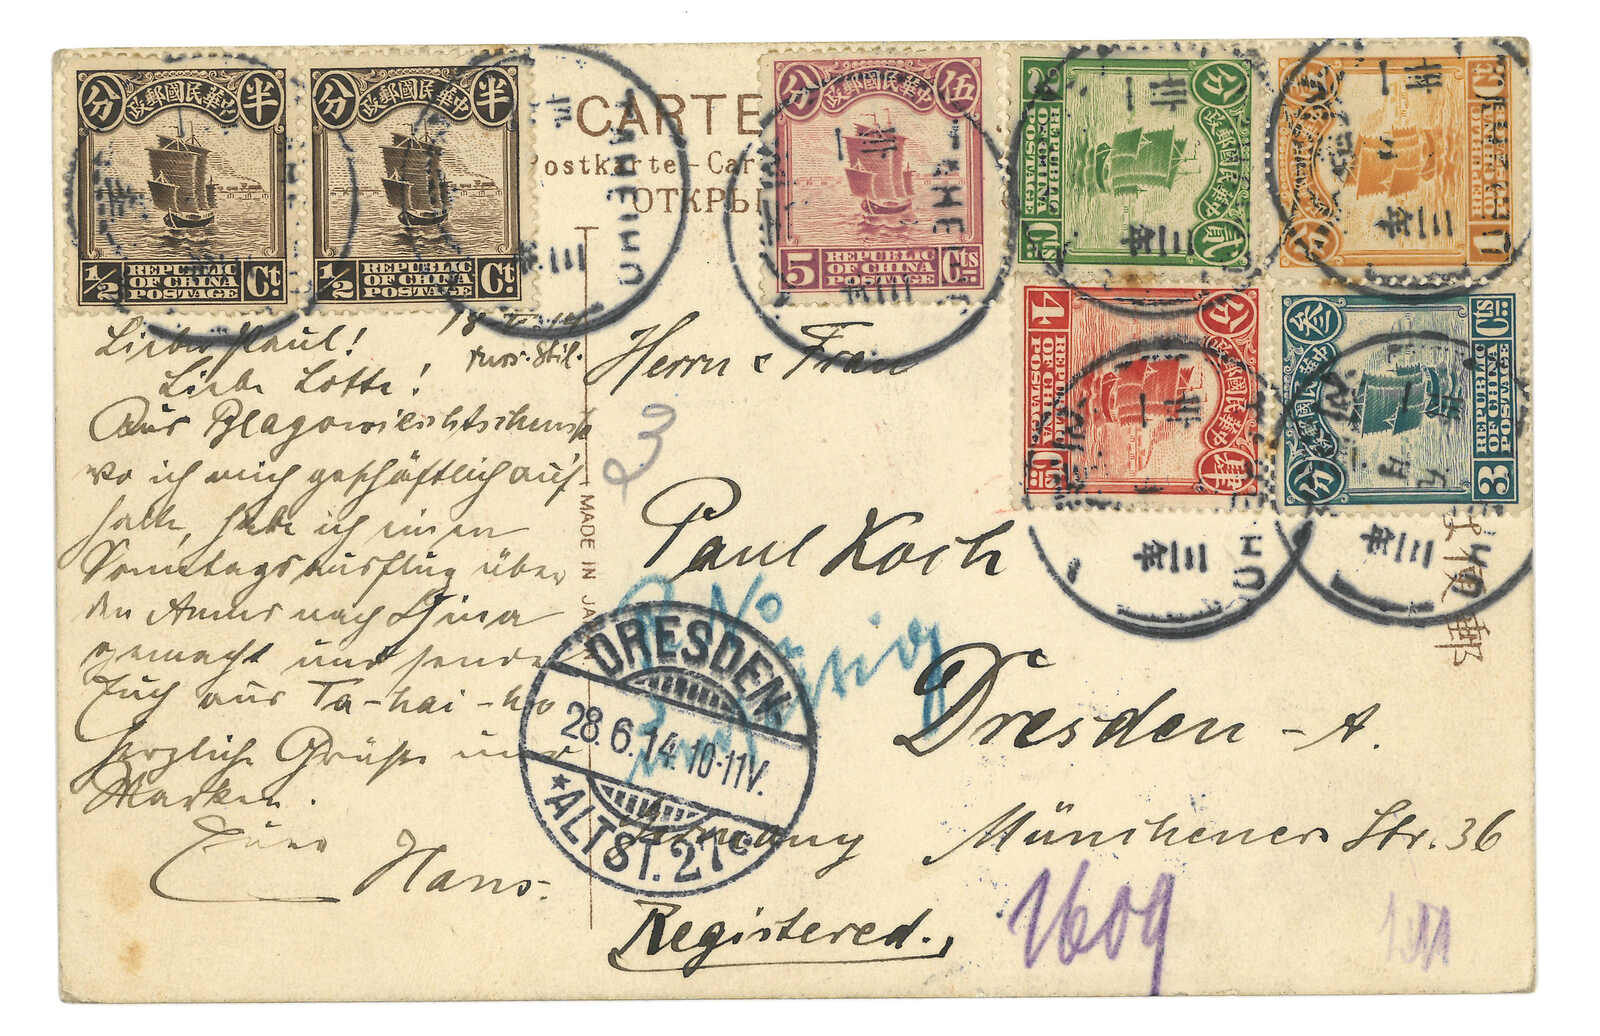 分 中華民國郵政 半
1/2 REPUBLIC OF CHINA POSTAGE Ct.
分 中華民國郵政 半
1/2 REPUBLIC OF CHINA POSTAGE Ct.
分 中華民國郵政 伍
5 REPUBLIC OF CHINA POSTAGE Cts
分 中華民國郵政 貳
2 REPUBLIC OF CHINA POSTAGE Cts
分 中華民國郵政
1 REPUBLIC OF CHINA POSTAGE Ct
分 中華民國郵政 肆
4 REPUBLIC OF CHINA POSTAGE Cts
分 中華民國郵政 叄
3 REPUBLIC OF CHINA POSTAGE Cts
TAHEIHO
三年
CARTE
Postkarte - Car
ОТКРЫ
MADE IN JA
郵
18
russ. Stil.
Lieber Paul!
Liebe Lotte!
Aus Blagowieschtschensk
wo ich mich geschäftlich auf-
halte, habe ich einen
Sonntagsausflug über
den Amur nach China
gemacht und sende
Euch aus Ta-hai-ho
herzliche Grüße und
Marken.
Euer
Hans.
Herrn & Frau
Paul Koch
Dresden - A.
Germany Münchener Str. 36
Registered.
3
No
1609
DRESDEN-
28.6.14. 10-11V.
*ALTST. 27c